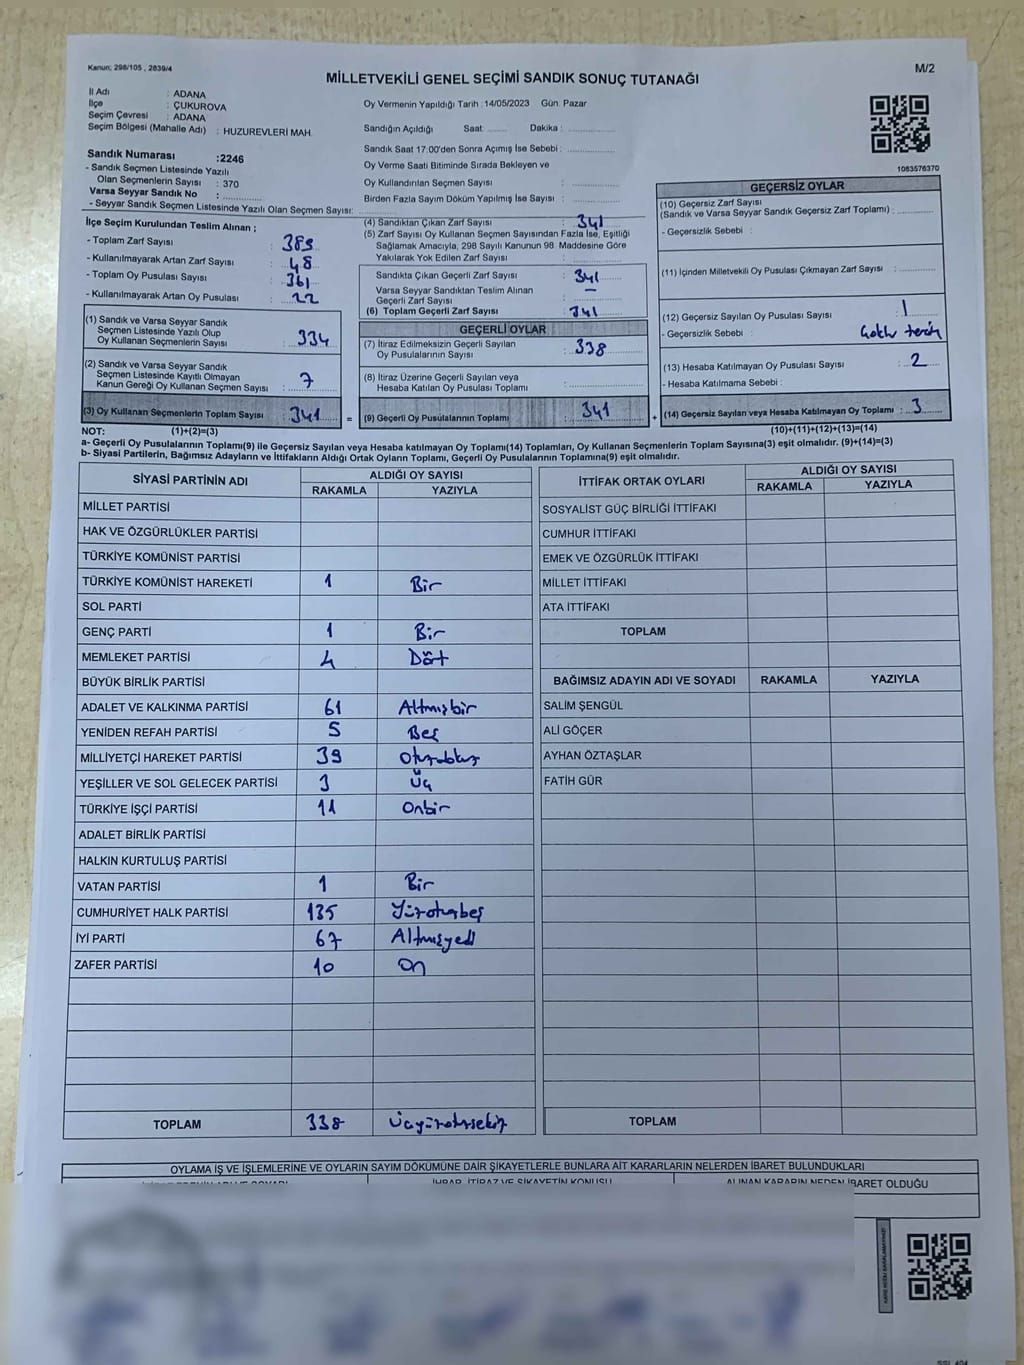 Kanun; 298/105 , 2839/4
M/2
MİLLETVEKİLİ GENEL SEÇİMİ SANDIK SONUÇ TUTANAĞI
İl Adı : ADANA
İlçe : ÇUKUROVA
Seçim Çevresi : ADANA
Seçim Bölgesi (Mahalle Adı) : HUZUREVLERİ MAH.
Sandık Numarası :2246
- Sandık Seçmen Listesinde Yazılı
Olan Seçmenlerin Sayısı : 370
Varsa Seyyar Sandık No :
- Seyyar Sandık Seçmen Listesinde Yazılı Olan Seçmen Sayısı:
Oy Vermenin Yapıldığı Tarih :14/05/2023 Gün: Pazar
Sandığın Açıldığı Saat: Dakika :
Sandık Saat 17:00'den Sonra Açımış İse Sebebi :
Oy Verme Saati Bitiminde Sırada Bekleyen ve
Oy Kullandırılan Seçmen Sayısı :
Birden Fazla Sayım Döküm Yapılmış İse Sayısı :
1083576370
İlçe Seçim Kurulundan Teslim Alınan ;
- Toplam Zarf Sayısı : 389
- Kullanılmayarak Artan Zarf Sayısı : 48
- Toplam Oy Pusulası Sayısı : 361
- Kullanılmayarak Artan Oy Pusulası : 22
(1) Sandık ve Varsa Seyyar Sandık
Seçmen Listesinde Yazılı Olup
Oy Kullanan Seçmenlerin Sayısı : 334
(2) Sandık ve Varsa Seyyar Sandık
Seçmen Listesinde Kayıtlı Olmayan
Kanun Gereği Oy Kullanan Seçmen Sayısı : 7
(3) Oy Kullanan Seçmenlerin Toplam Sayısı : 341 =
(4) Sandıktan Çıkan Zarf Sayısı : 341
(5) Zarf Sayısı Oy Kullanan Seçmen Sayısından Fazla İse, Eşitliği
Sağlamak Amacıyla, 298 Sayılı Kanunun 98. Maddesine Göre
Yakılarak Yok Edilen Zarf Sayısı :
Sandıkta Çıkan Geçerli Zarf Sayısı : 341
Varsa Seyyar Sandıktan Teslim Alınan
Geçerli Zarf Sayısı : —
(6) Toplam Geçerli Zarf Sayısı : 341
GEÇERLİ OYLAR
(7) İtiraz Edilmeksizin Geçerli Sayılan
Oy Pusulalarının Sayısı : 338
(8) İtiraz Üzerine Geçerli Sayılan veya
Hesaba Katılan Oy Pusulası Toplamı :
(9) Geçerli Oy Pusulalarının Toplamı : 341 +
GEÇERSİZ OYLAR
(10) Geçersiz Zarf Sayısı
(Sandık ve Varsa Seyyar Sandık Geçersiz Zarf Toplamı) :
- Geçersizlik Sebebi :
(11) İçinden Milletvekili Oy Pusulası Çıkmayan Zarf Sayısı :
(12) Geçersiz Sayılan Oy Pusulası Sayısı : 1
- Geçersizlik Sebebi :
(13) Hesaba Katılmayan Oy Pusulası Sayısı : 2
- Hesaba Katılmama Sebebi :
(14) Geçersiz Sayılan veya Hesaba Katılmayan Oy Toplamı : 3
NOT: (1)+(2)=(3)
(10)+(11)+(12)+(13)=(14)
a- Geçerli Oy Pusulalarının Toplamı(9) ile Geçersiz Sayılan veya Hesaba katılmayan Oy Toplamı(14) Toplamları, Oy Kullanan Seçmenlerin Toplam Sayısına(3) eşit olmalıdır. (9)+(14)=(3)
b- Siyasi Partilerin, Bağımsız Adayların ve İttifakların Aldığı Ortak Oyların Toplamı, Geçerli Oy Pusulalarının Toplamına(9) eşit olmalıdır.
SİYASİ PARTİNİN ADI
ALDIĞI OY SAYISI
RAKAMLA YAZIYLA
MİLLET PARTİSİ
HAK VE ÖZGÜRLÜKLER PARTİSİ
TÜRKİYE KOMÜNİST PARTİSİ
TÜRKİYE KOMÜNİST HAREKETİ 1 Bir
SOL PARTİ
GENÇ PARTİ 1 Bir
MEMLEKET PARTİSİ 4 Dört
BÜYÜK BİRLİK PARTİSİ
ADALET VE KALKINMA PARTİSİ 61 Altmışbir
YENİDEN REFAH PARTİSİ 5 Beş
MİLLİYETÇİ HAREKET PARTİSİ 39 Otuzdokuz
YEŞİLLER VE SOL GELECEK PARTİSİ 3 Üç
TÜRKİYE İŞÇİ PARTİSİ 11 Onbir
ADALET BİRLİK PARTİSİ
HALKIN KURTULUŞ PARTİSİ
VATAN PARTİSİ 1 Bir
CUMHURİYET HALK PARTİSİ 135 Yüzotuzbeş
İYİ PARTİ 67 Altmışyedi
ZAFER PARTİSİ 10 On
TOPLAM 338 Üçyüzotuzsekiz
İTTİFAK ORTAK OYLARI
ALDIĞI OY SAYISI
RAKAMLA YAZIYLA
SOSYALİST GÜÇ BİRLİĞİ İTTİFAKI
CUMHUR İTTİFAKI
EMEK VE ÖZGÜRLÜK İTTİFAKI
MİLLET İTTİFAKI
ATA İTTİFAKI
TOPLAM
BAĞIMSIZ ADAYIN ADI VE SOYADI RAKAMLA YAZIYLA
SALİM ŞENGÜL
ALİ GÖÇER
AYHAN ÖZTAŞLAR
FATİH GÜR
TOPLAM
OYLAMA İŞ VE İŞLEMLERİNE VE OYLARIN SAYIM DÖKÜMÜNE DAİR ŞİKAYETLERLE BUNLARA AİT KARARLARIN NELERDEN İBARET BULUNDUKLARI
İHBAR, İTİRAZ VE ŞİKAYETİN KONUSU
ALINAN KARARIN NEDEN İBARET OLDUĞU